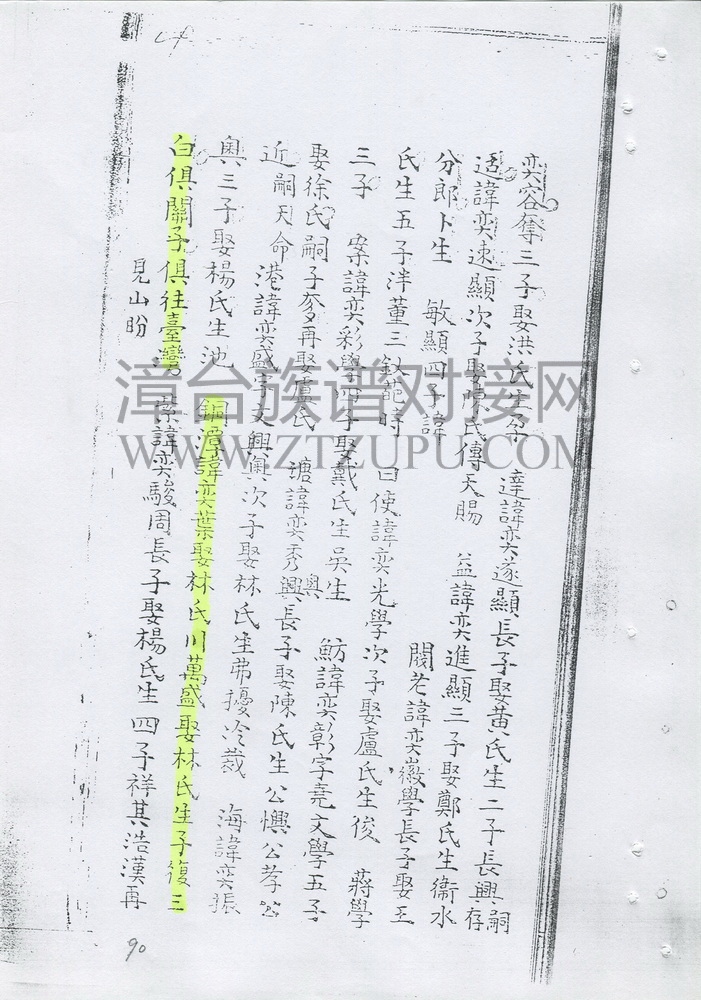 奕容奪三子娶洪氏生 達諱奕遂顯長子娶黃氏生二子長興嗣存
适諱奕速顯次子娶陳氏傳天賜 益諱奕進顯三子娶鄭氏生衞水
分郎卜生 敏顯四子諱 閥老諱奕徽學長子娶王
氏生五子泮董三 時 曰使諱奕光學次子娶盧氏生後 蔣學
三子 案諱奕彩學四子娶戴氏生吳生 魴諱奕彰字堯文學五子
娶徐氏嗣子 再娶盧氏 瑭諱奕秀興長子娶陳氏生公懊公孝公
近嗣天命 港諱奕盛字文興奧次子娶林氏生弗擾冷裁 海諱奕振
奧三子娶楊氏生池 銅潭諱奕葉娶林氏川萬盛娶林氏生子復三
白俱關子俱往臺灣 崇諱奕駿周長子娶楊氏生四子祥其浩漢再
見山盼
90
漳台族谱对接网
WWW.ZTZUPU.COM